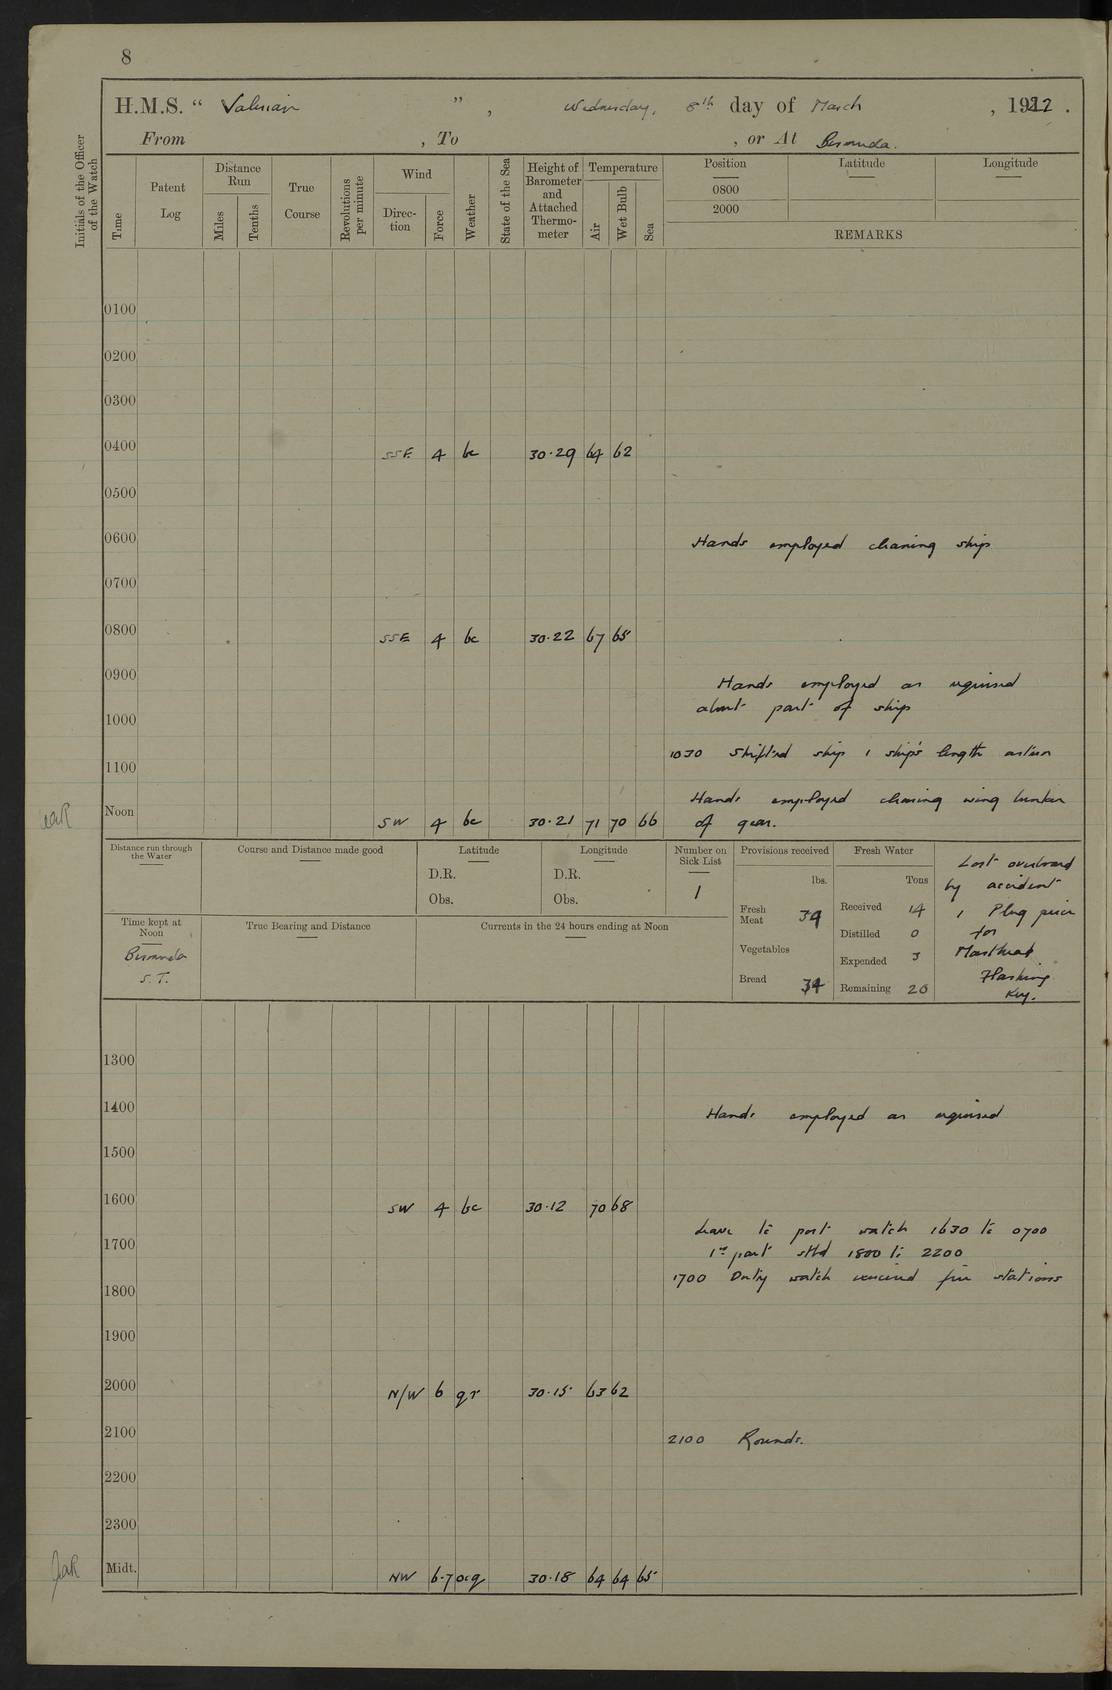 8
H.M.S. “ Valerian ” , Wednesday, 8th day of March , 1922 .
From , To , or At Bermuda.
Initials of the Officer of the Watch
Time
Patent Log
Distance Run
Miles
Tenths
True Course
Revolutions per minute
Wind
Direc- tion
Force
Weather
State of the Sea
Height of Barometer and Attached Thermo- meter
Temperature
Air
Wet Bulb
Sea
Position Latitude Longitude
0800
2000
REMARKS
0100
0200
0300
0400 SSE 4 bc 30·29 64 62
0500
0600 Hands employed cleaning ship
0700
0800 SSE 4 bc 30·22 67 65
0900 Hands employed as required
about part of ship
1000
1030 Shifted ship 1 ship's length astern
1100
Hands employed cleaning wing bunker
Noon SW 4 bc 30·21 71 70 66 of gear.
Distance run through the Water
Course and Distance made good
Latitude
D.R.
Obs.
Longitude
D.R.
Obs.
Number on Sick List
1
Provisions received
lbs.
Fresh Meat 34
Vegetables
Bread 34
Fresh Water
Tons
Received 14
Distilled 0
Expended 3
Remaining 20
Lost overboard
by accident
1 Plug piece
for
Masthead
Flashing
Key.
Time kept at Noon
Bermuda
S.T.
True Bearing and Distance
Currents in the 24 hours ending at Noon
1300
1400 Hands employed as required
1500
1600 SW 4 bc 30·12 70 68
Leave to port watch 1630 to 0700
1700 1st part stbd 1800 to 2200
1700 Duty watch exercised fire stations
1800
1900
2000 N/W 6 qr 30·15 63 62
2100 2100 Rounds.
2200
2300
Midt. NW 6·7 ocq 30·18 64 64 65